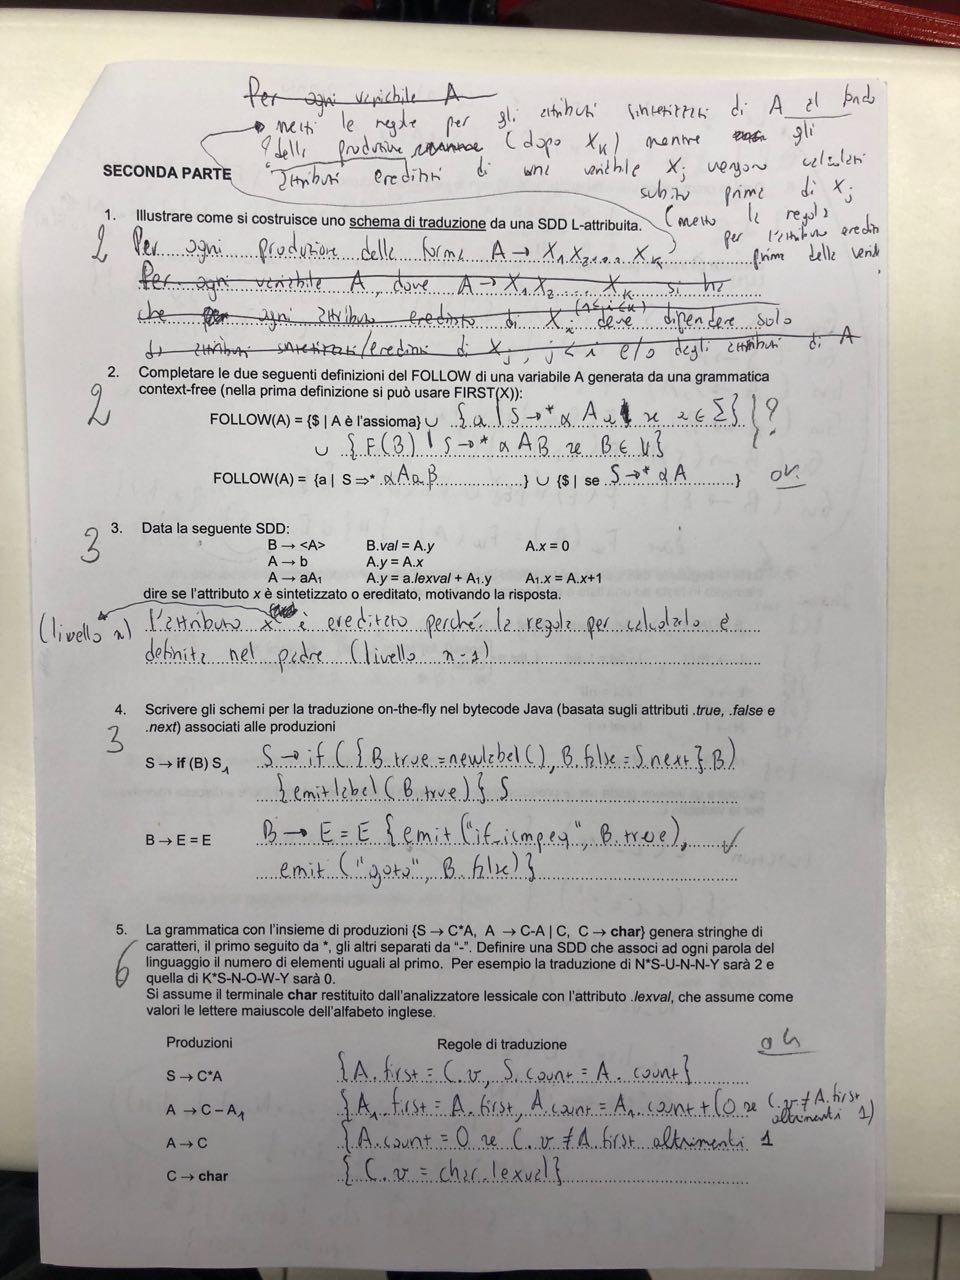 Per ogni variabile A
metti le regole per gli attributi sintetizzati di A al fondo
della produzione (dopo Xk) mentre gli
attributi ereditati di una variabile Xj vengono calcolati
subito prima di Xj
(metto la regola
per l'attributo eredit
prima della variab
SECONDA PARTE
1. Illustrare come si costruisce uno schema di traduzione da una SDD L-attribuita.
2
Per ogni produzione della forma A → X1 X2 .... Xk
Per ogni variabile A, dove A → X1 X2 .... Xk si ha
che ogni attributo ereditato di Xi (1≤i≤k) deve dipendere solo
da attributi sintetizzati/ereditati di Xj, j<i e/o degli attributi di A
2. Completare le due seguenti definizioni del FOLLOW di una variabile A generata da una grammatica
context-free (nella prima definizione si può usare FIRST(X)):
2
FOLLOW(A) = {$ | A è l'assioma} ∪ {a | S →* α A a se a ∈ Σ} ?
∪ {F(B) | S →* α A B se B ∈ V}
FOLLOW(A) = {a | S ⇒* αAaβ } ∪ {$ | se S →* αA } ok
3. Data la seguente SDD:
3
B → <A> B.val = A.y A.x = 0
A → b A.y = A.x
A → aA1 A.y = a.lexval + A1.y A1.x = A.x+1
dire se l'attributo x è sintetizzato o ereditato, motivando la risposta.
(livello n) l'attributo x è ereditato perché la regola per calcolarlo è
definita nel padre (livello n-1)
4. Scrivere gli schemi per la traduzione on-the-fly nel bytecode Java (basata sugli attributi .true, .false e
.next) associati alle produzioni
3
S → if (B) S1 S → if ( { B.true = newlabel(), B.false = S.next } B)
{ emitlabel (B.true) } S
B → E = E B → E = E { emit ("if_icmpeq", B.true),
emit ("goto", B.false) }
5. La grammatica con l'insieme di produzioni {S → C*A, A → C-A | C, C → char} genera stringhe di
caratteri, il primo seguito da *, gli altri separati da "-". Definire una SDD che associ ad ogni parola del
linguaggio il numero di elementi uguali al primo. Per esempio la traduzione di N*S-U-N-N-Y sarà 2 e
quella di K*S-N-O-W-Y sarà 0.
6
Si assume il terminale char restituito dall'analizzatore lessicale con l'attributo .lexval, che assume come
valori le lettere maiuscole dell'alfabeto inglese.
Produzioni Regole di traduzione ok
S → C*A { A.first = C.v, S.count = A.count }
A → C – A1 { A1.first = A.first, A.count = A1.count + (0 se C.v ≠ A.first
altrimenti 1)
A → C { A.count = 0 se C.v ≠ A.first altrimenti 1
C → char { C.v = char.lexval }